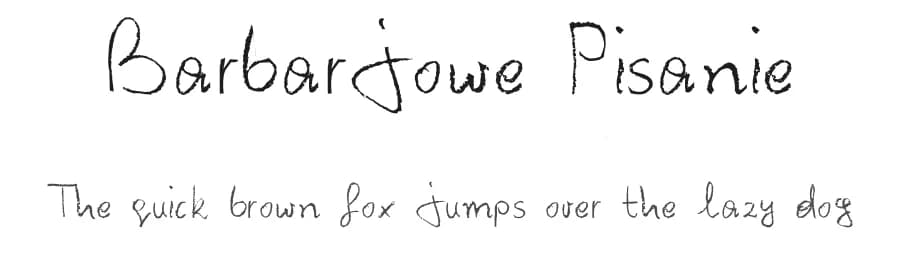 Barbarjowe Pisanie
The quick brown fox jumps over the lazy dog